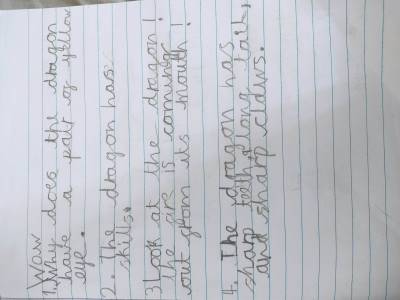 Wow
1. Why does the dragon
have a pair of yellow
eye.
2. The dragon has
skills.
3. Look at the dragon!
The fire is coming
out from its mouth!
4. The dragon has
sharp teeth, long tail,
and sharp claws.